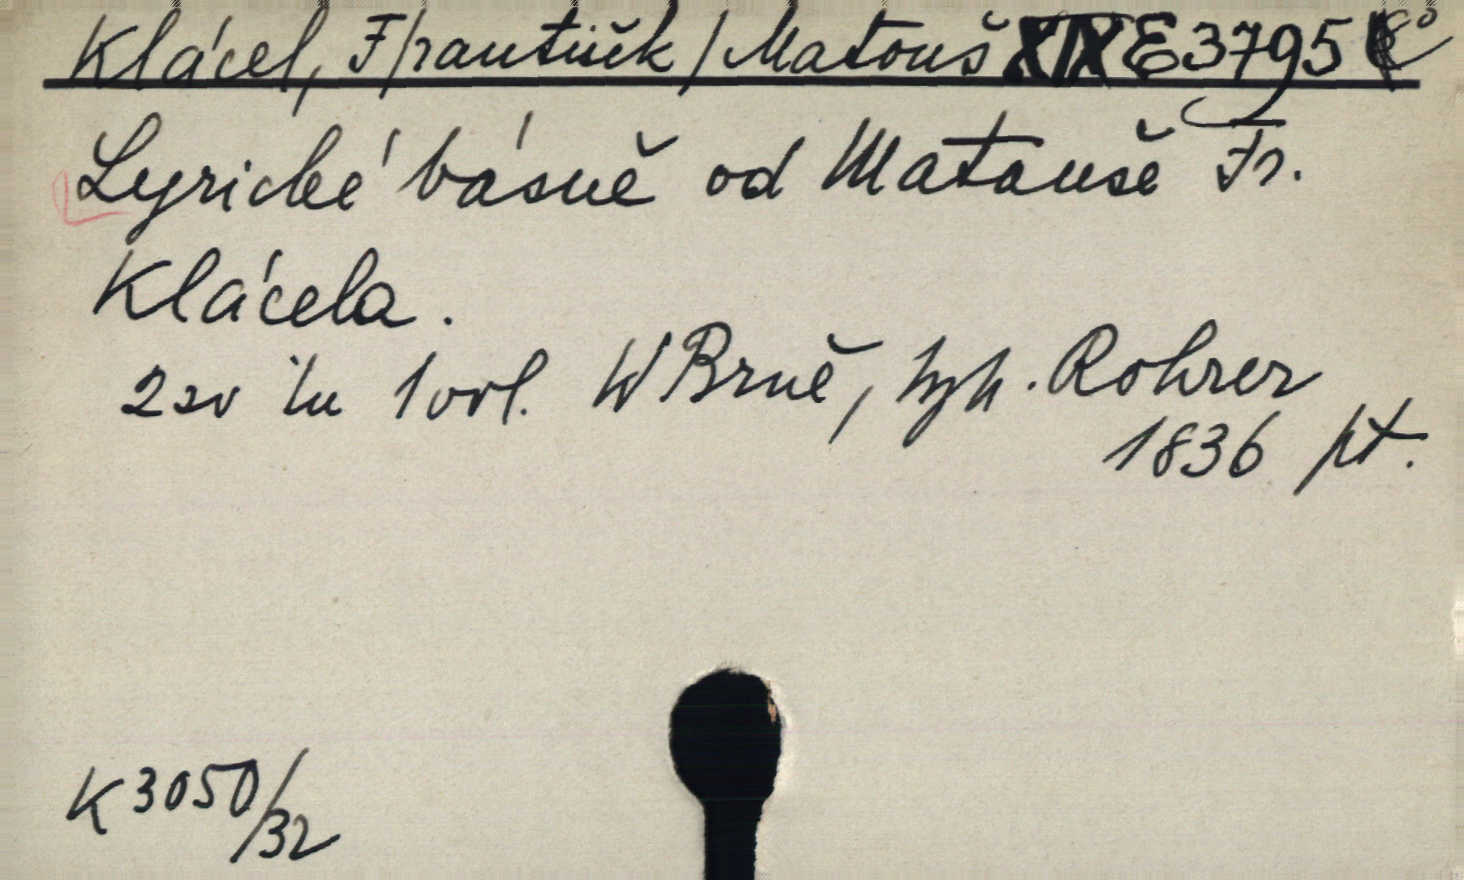 Klácel, F/rantišek/ Matouš XIX E 3795
Lyrické básně od Matouše Fr.
Klácela.
2 sv in 1 vol. W Brně, typ. Rohrer
1836 pt.
K 3050/32